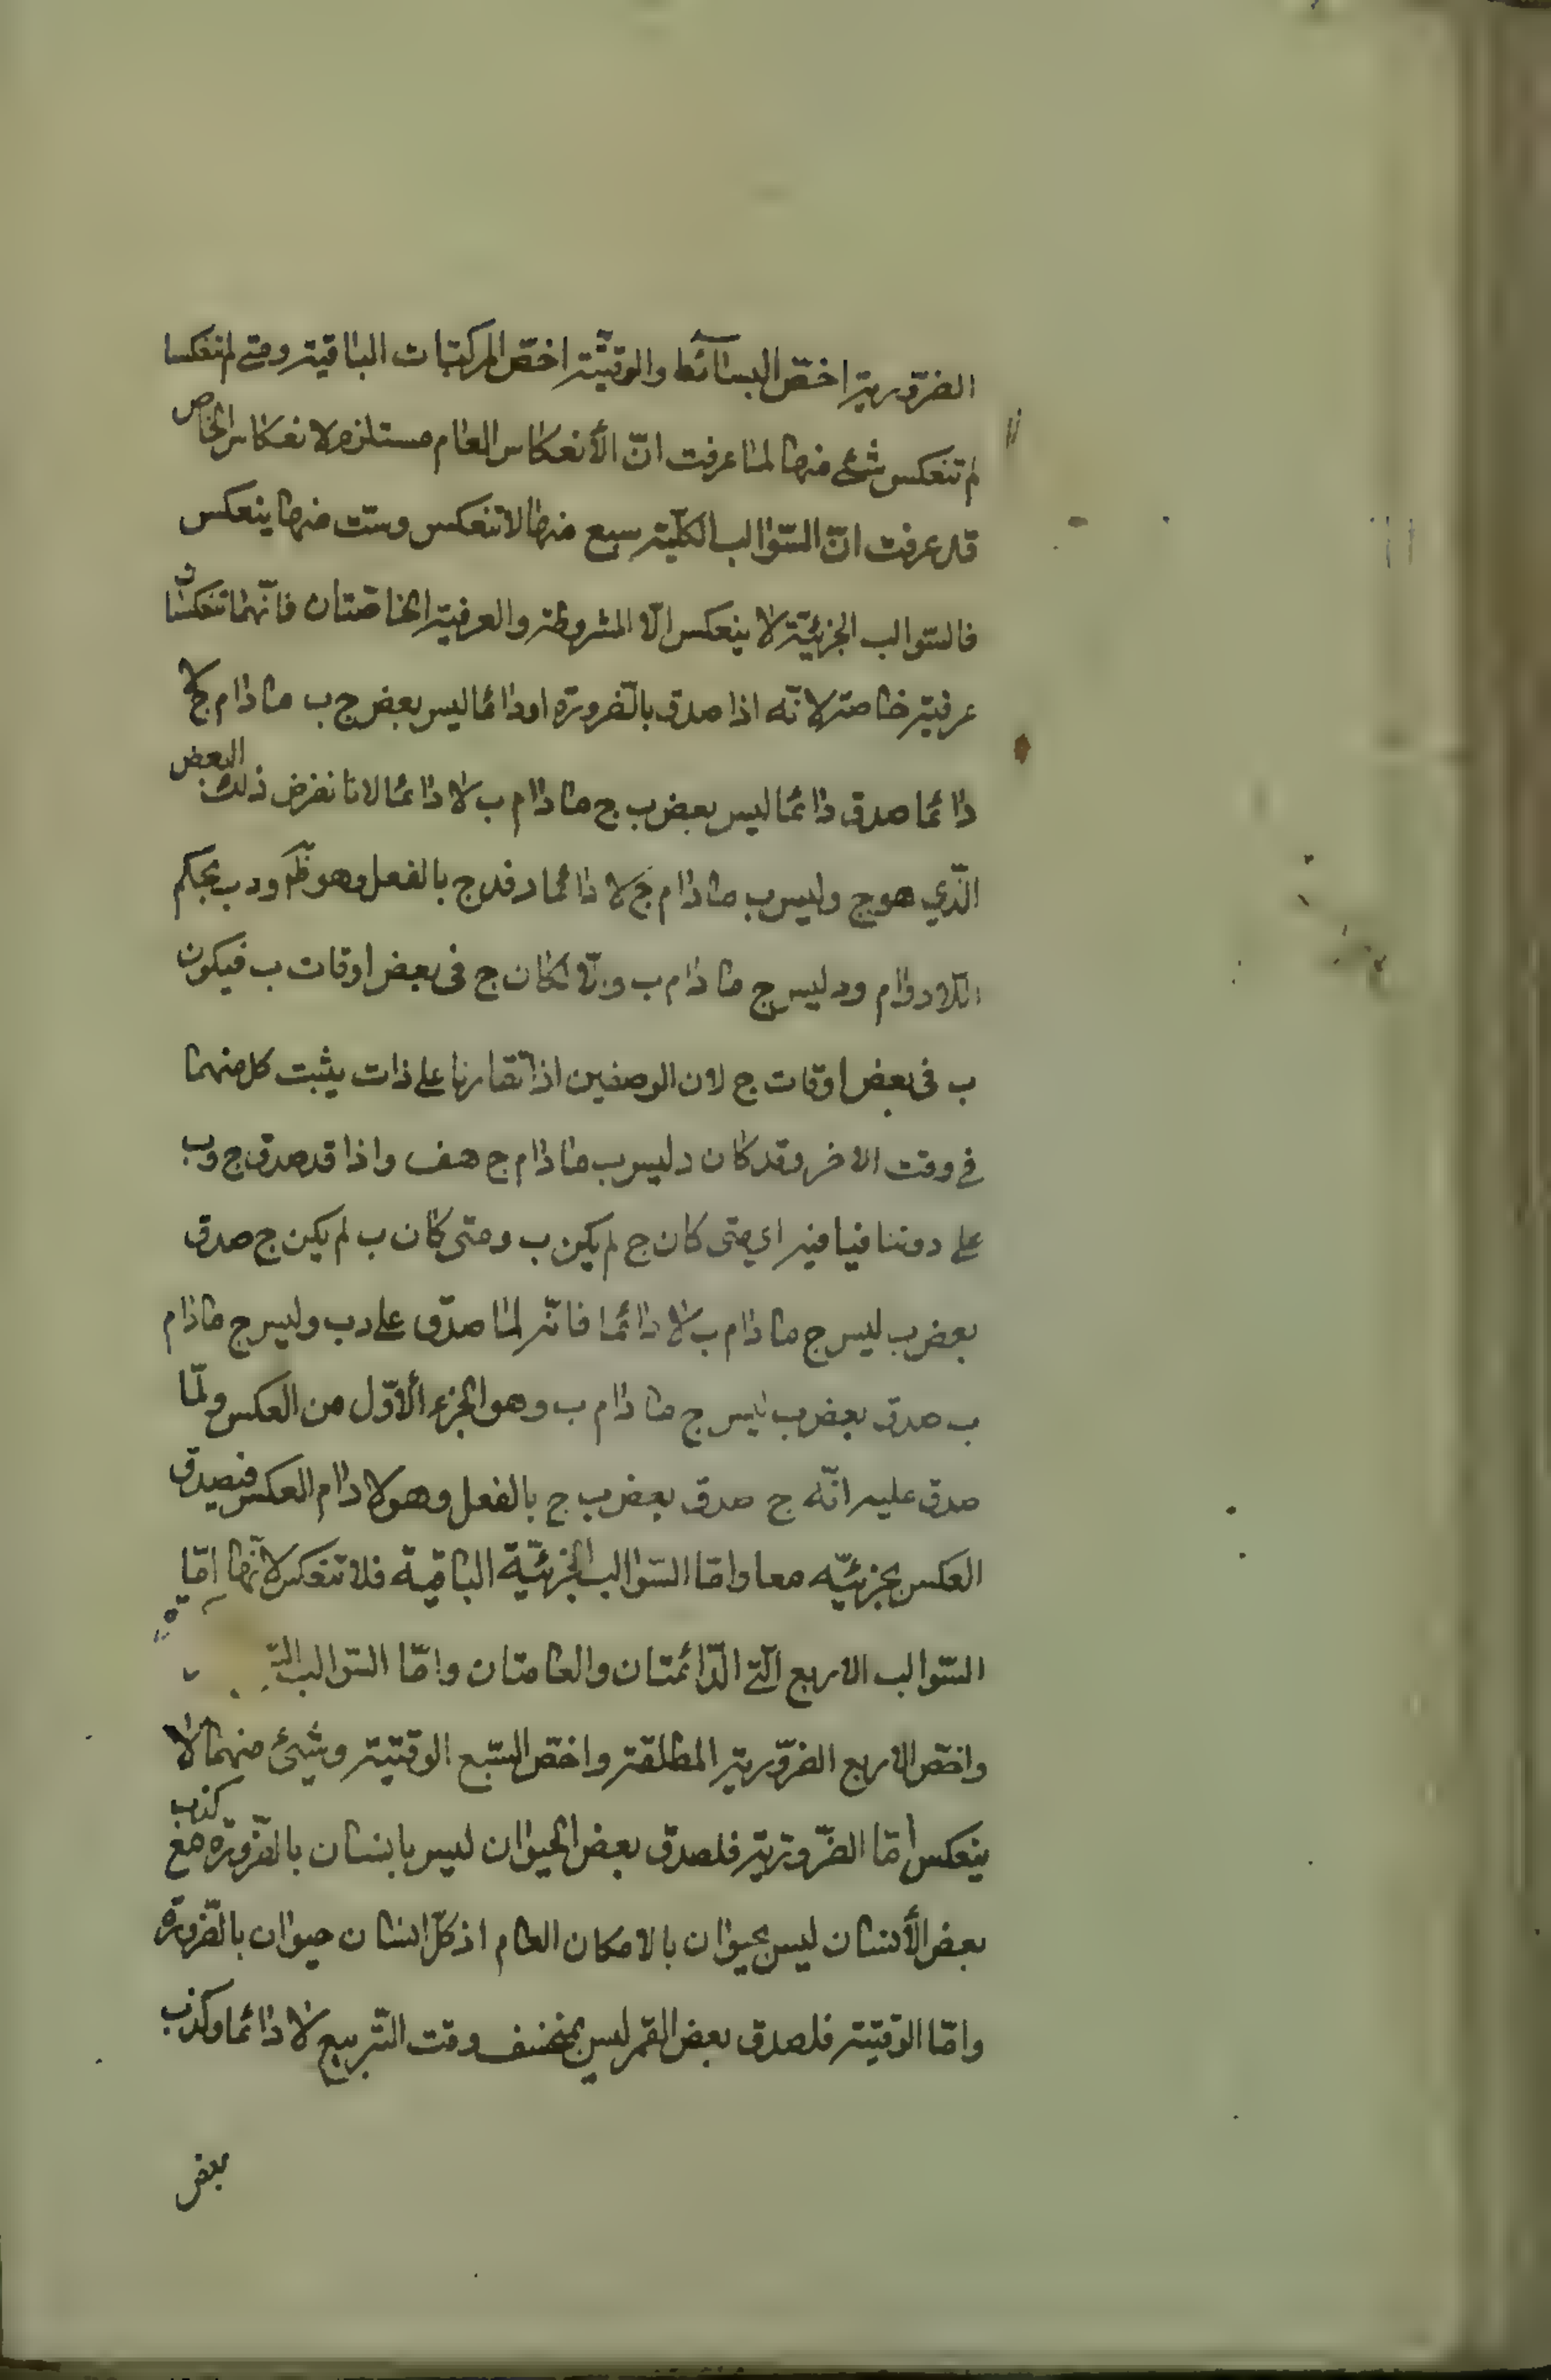 الضّروريّة اخصّ البسآئط والوقتيّة اخصّ المركبات الباقية ومتى لم تنعكسا
لم تنعكس شئ منها لما عرفت انّ الأنعكاس العام مستلزم لانعكاس الخاص
قد عرفت انّ السّوالب الكلّية سبع منها لا تنعكس وستّ منها ينعكس
فالسّوالب الجزئيّة لا ينعكس الّا المشروطة والعرفية الخاصّتان فانّهما تنعكسان
عرفية خاصة لانّه اذا صدق بالضّرورة او دائما ليس بعض ج ب ما دام ج لا
دائما صدق دائما ليس بعض ب ج ما دام ب لا دائما لانا نفرض ذلك البعض
الّذي هو ج وليس ب ما دام ج لا دائما د فد ج بالفعل وهو ظ ود ب بحكم
اللادوام ود ليس ج ما دام ب والّا لكان ج فى بعض اوقات ب فيكون
ب فى بعض اوقات ج لان الوصفين اذا تقارنا على ذات يثبت كل منهما
فى وقت الاخر وقد كان د ليس ب ما دام ج هف واذا قد صدق ج وب
على د وتنافيا فيه اي متى كان ج لم يكن ب ومتى كان ب لم يكن ج صدق
بعض ب ليس ج ما دام ب لا دائما فانّه لما صدق على د ب وليس ج ما دام
ب صدق بعض ب ليس ج ما دام ب وهو الجزء الاوّل من العكس ولمّا
صدق عليه انّه ج صدق بعض ب ج بالفعل وهو لا دام العكس فيصدق
العكس بجزئيّه معا وامّا السّوالب الجزئيّة الباقية فلا تنعكس لانّها امّا
السّوالب الاربع الّتى الدّائمتان والعامتان وامّا السّوالب
واخصّ الاربع الضّروريّة المطلقة واخصّ السّبع الوقتية وشيئ منهما لا
ينعكس امّا الضّروريّة فلصدق بعض الحيوان ليس بانسان بالضّرورة مع كذب
بعض الأنسان ليس بحيوان بالامكان العام اذ كلّ انسان حيوان بالضّرورة
وامّا الوقتية فلصدق بعض القمر ليس بمنخسف وقت التّربيع لا دائما وكذب
بعض